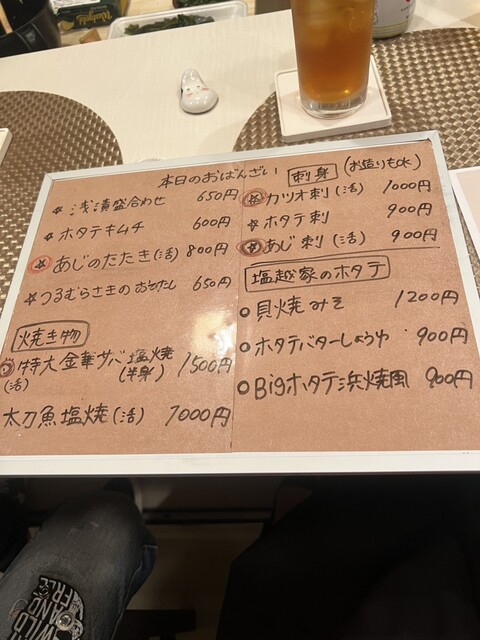 本日のおばんざい
☆ 浅漬盛合わせ 650円
☆ ホタテキムチ 600円
☆ あじのたたき(活) 800円
☆ つるむらさきの おひたし 650円
焼き物
◎ 特大金華サバ塩焼(半身) 1500円
(活)
太刀魚塩焼(活) 1000円
刺身 (お造りもOK)
☆ カツオ刺(活) 1000円
☆ ホタテ刺 900円
☆ あじ刺(活) 900円
塩越家のホタテ
○ 貝焼みそ 1200円
○ ホタテバターしょうゆ 900円
○ Bigホタテ浜焼風 900円
WILD
AND
FREE